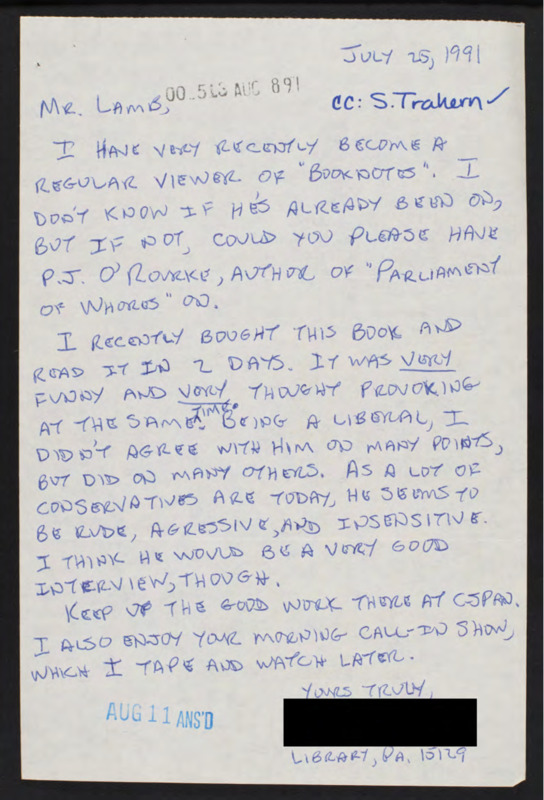 JULY 25, 1991
00_5 AUG 891
MR. LAMB,
cc: S. Trahern ✓
I HAVE VERY RECENTLY BECOME A
REGULAR VIEWER OF "BOOKNOTES". I
DON'T KNOW IF HE'S ALREADY BEEN ON,
BUT IF NOT, COULD YOU PLEASE HAVE
P.J. O'ROURKE, AUTHOR OF "PARLIAMENT
OF WHORES" ON.
I RECENTLY BOUGHT THIS BOOK AND
READ IT IN 2 DAYS. IT WAS VERY
FUNNY AND VERY THOUGHT PROVOKING
AT THE SAME TIME. BEING A LIBERAL, I
DIDN'T AGREE WITH HIM ON MANY POINTS,
BUT DID ON MANY OTHERS. AS A LOT OF
CONSERVATIVES ARE TODAY, HE SEEMS TO
BE RUDE, AGRESSIVE, AND INSENSITIVE.
I THINK HE WOULD BE A VERY GOOD
INTERVIEW, THOUGH.
KEEP UP THE GOOD WORK THERE AT CSPAN.
I ALSO ENJOY YOUR MORNING CALL-IN SHOW,
WHICH I TAPE AND WATCH LATER.
YOURS TRULY,
AUG 11 ANS'D
LIBRARY, PA. 15129